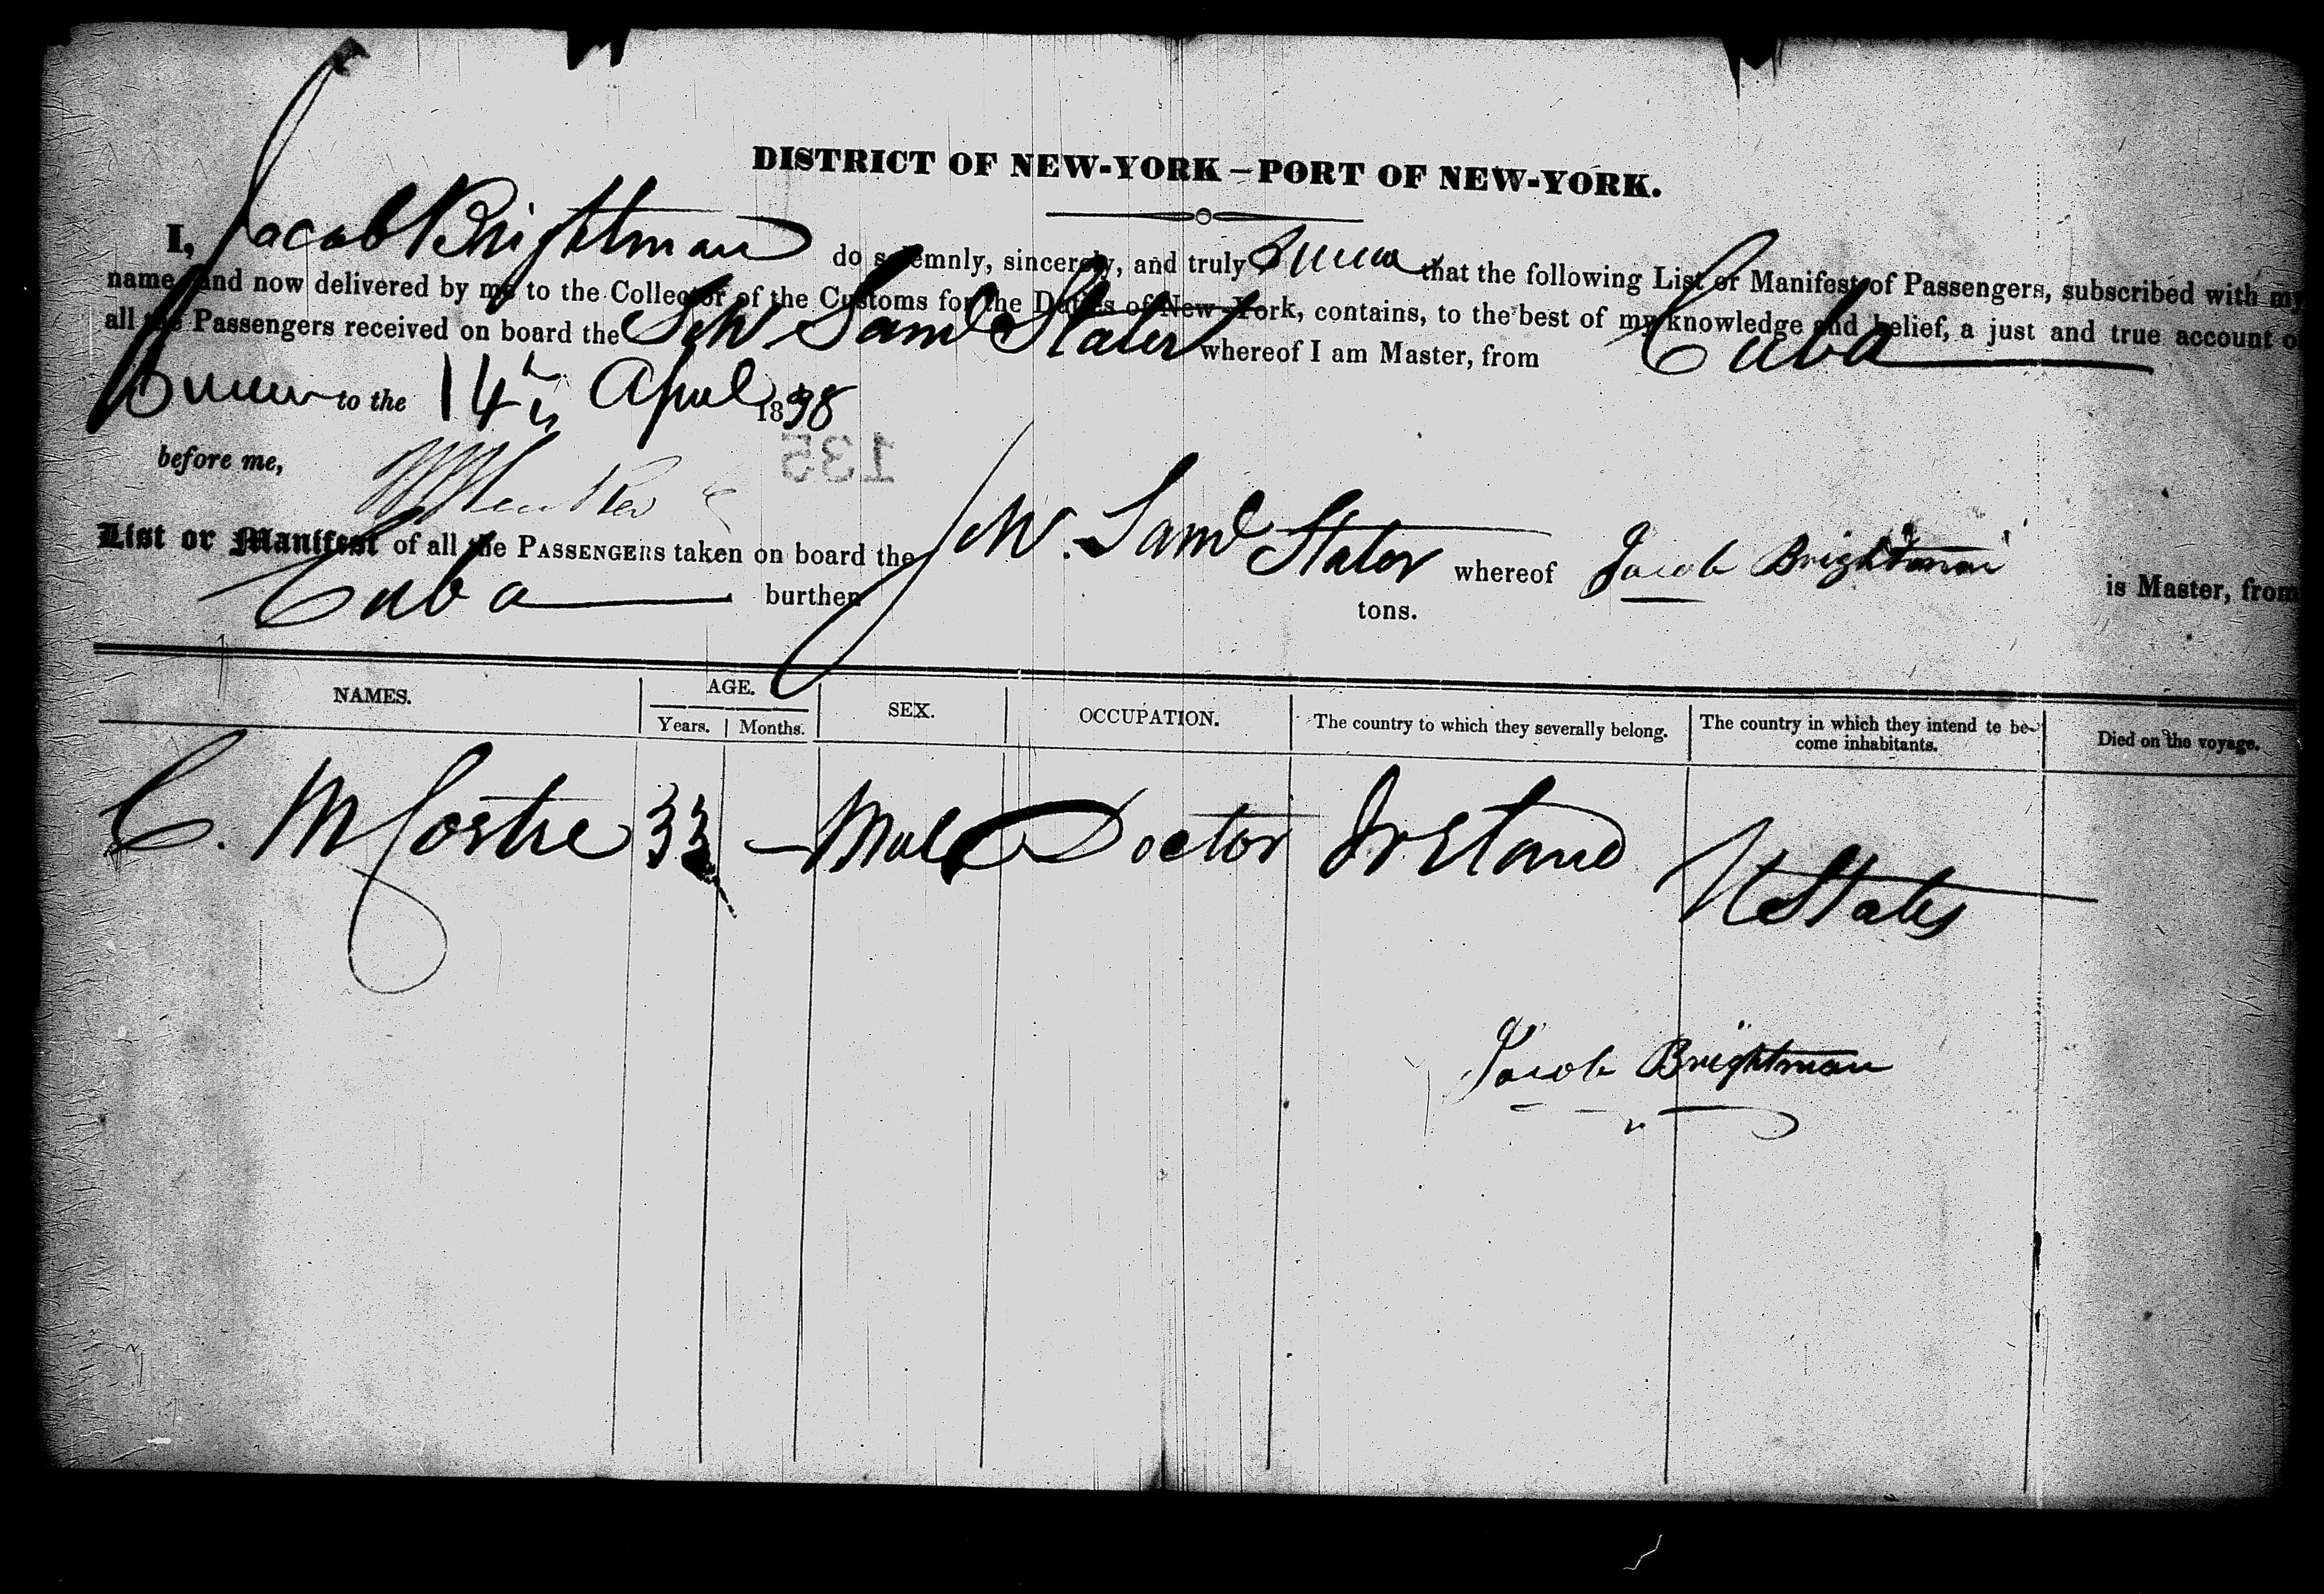 DISTRICT OF NEW-YORK — PORT OF NEW-YORK.
I, Jacob Brightman do solemnly, sincerely, and truly Swear that the following List or Manifest of Passengers, subscribed with my
name, and now delivered by me to the Collector of the Customs for the Duties of New-York, contains, to the best of my knowledge and belief, a just and true account of
all the Passengers received on board the Schr Saml Slater whereof I am Master, from Cuba
Sworn to the 14th April 1838
135
before me,
List or Manifest of all the PASSENGERS taken on board the Schr. Saml Slater whereof Jacob Brightman is Master, from
Cuba burthen tons.
NAMES. AGE. SEX. OCCUPATION. The country to which they severally belong. The country in which they intend te become inhabitants. Died on the voyage.
Years. Months.
C. M 33 — Male Doctor Ireland U States
Jacob Brightman